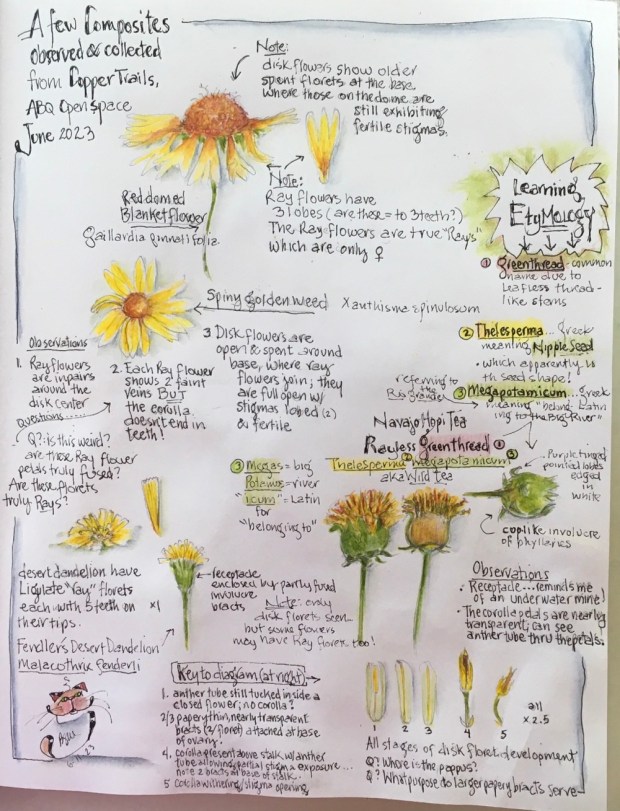 A few Composites
observed & collected
from Copper Trails,
ABQ Open space
June 2023
Note:
disk flowers show older
spent florets at the base
where those on the dome are
still exhibiting
fertile stigmas.
Note:
Ray flowers have
3 lobes (are these = to 3 teeth?)
The Ray flowers are true "Rays"
which are only ♀
Red domed
Blanketflower
Gaillardia pinnatifolia
Learning
Etymology
① Greenthread - common
name due to
Leafless thread-
like stems
② Thelesperma... Greek
meaning Nipple Seed
• which apparently is
the seed shape!
referring to
the Rio Grande
③ Megapotamicum... Greek
meaning "belong- Latin
ing to the Big River"
Spiny Goldenweed Xanthisma spinulosum
Observations
1. Ray flowers
are in pairs
around the
disk center
2. Each Ray flower
shows 2 faint
veins BUT
the corilla
doesn't end in
teeth!
3 Disk flowers are
open & spent around
base, where ray
flowers join; they
are full open w/
stigmas lobed (2)
& fertile
Questions.....
Q?: is this weird?
are these Ray flower
petals truly fused?
Are these florets
truly Rays?
Navajo Hopi Tea
Rayless Greenthread ①
Thelesperma ② megapotamicum ③
aka Wild Tea
③ Megas = big
Potamos = river
"icum" = Latin
for
"belonging to"
Purple tinged
pointed lobes
edged in
white
cuplike involucre
of phyllaries
desert dandelion have
Ligulate "ray" florets
each with 5 teeth on
their tips.
x1
Fendler's Desert Dandelion
Malacothrix fendleri
receptacle
enclosed by partly fused
involucre
bracts
Note: only
disk florets seen...
but some flowers
may have Ray florets too!
Observations
• Receptacle... reminds me
of an underwater mine!
• The corolla petals are nearly
transparent; can see
anther tube thru the petals.
Key to diagram (at right)
1. anther tube still tucked inside a
closed flower; no corolla?
2/3 paper thin, nearly transparent
bracts (2/floret) attached at base
of ovary.
4. corolla present above stalk w/anther
tube allowing partial stigma exposure...
note 2 bracts at base of stalk.
5 Corolla withering/stigma opening
1 2 3 4 5
all
x 2.5
All stages of disk floret development
Q? Where is the pappus?
Q? What purpose to larger papery bracts serve-